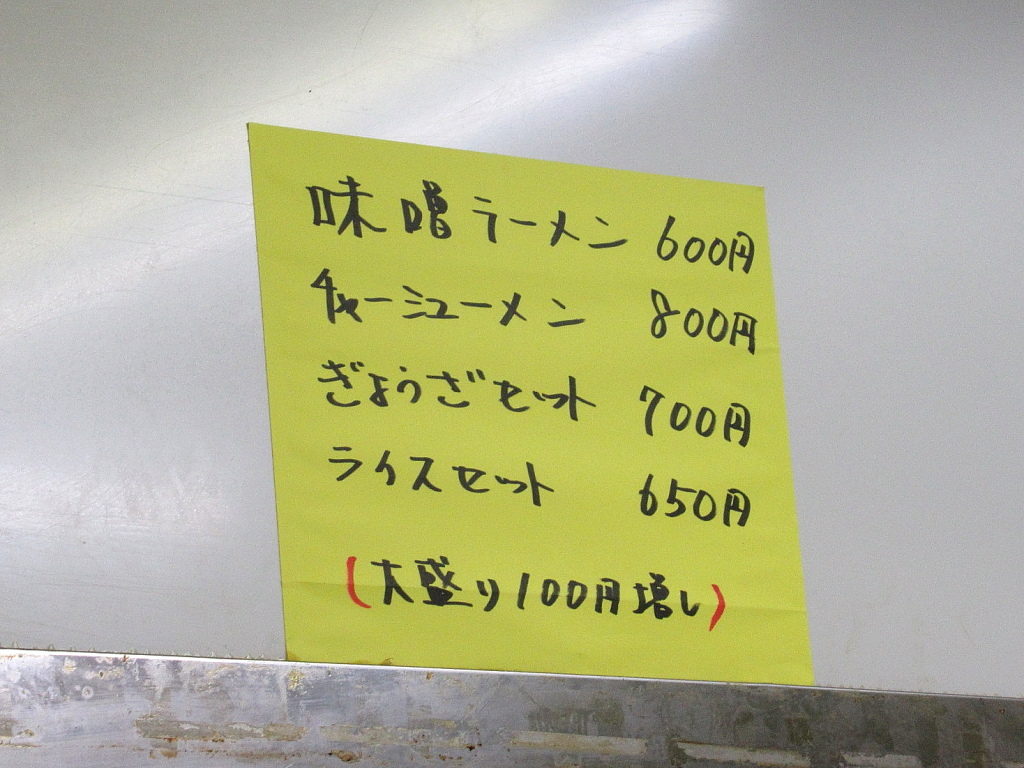 味噌ラーメン 600円
チャーシューメン 800円
ぎょうざセット 700円
ライスセット 650円
(大盛り100円増し)